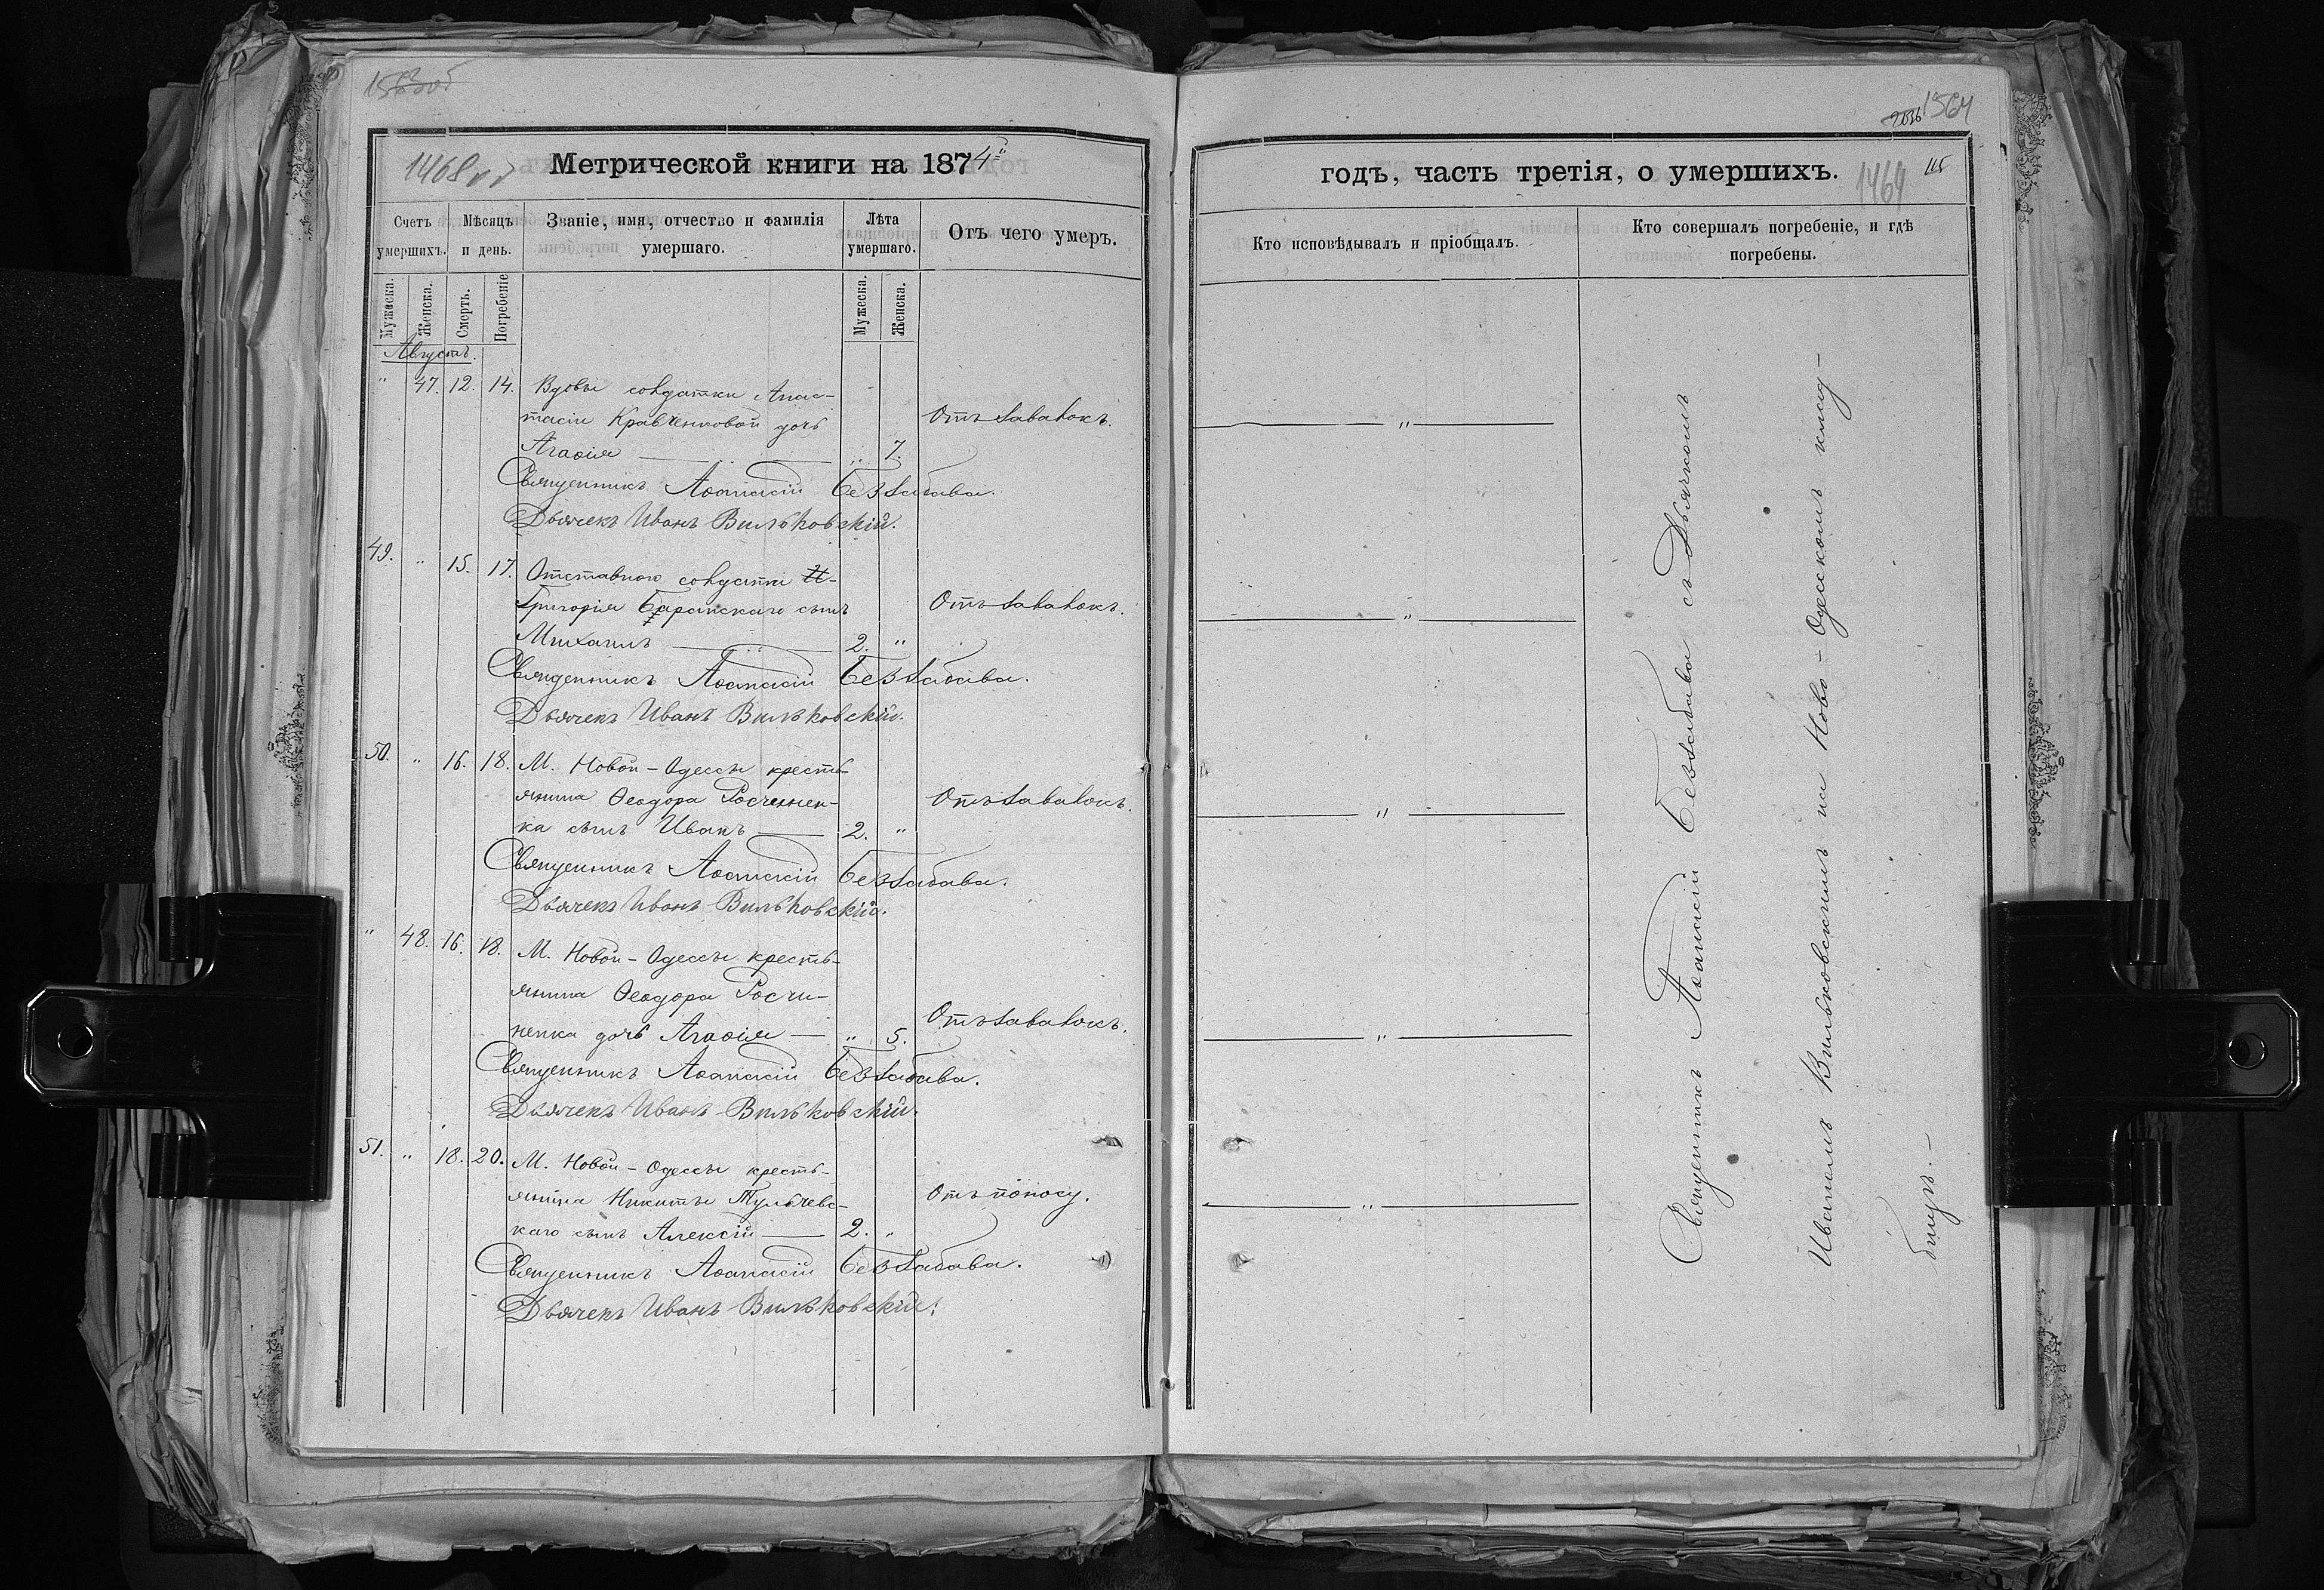 1563об
1468об
Метрической книги на 1874
Счетъ умершихъ.
Мѣсяцъ и день.
Званіе, имя, отчество и фамилія умершаго.
Лѣта умершаго.
Отъ чего умеръ.
Мужеска.
Женска.
Смерть.
Погребеніе
Мужеска.
Женска.
Августъ.
" 47. 12. 14. Вдовы солдатки Анас-
тасіи Кравченковой дочь
Отъ лавалокъ.
Агаѳія — " 7.
Священникъ Аѳанасій Беззабава.
Дьячекъ Иванъ Вильковскій.
49. " 15. 17. Отставного солдата И-
Григорія Баранскаго сынъ
Отъ лавалокъ.
Михаилъ — 2. "
Священникъ Аѳанасій Беззабава.
Дьячекъ Иванъ Вильковскій.
50. " 16. 18. М. Новой-Одессы кресть-
янина Ѳеодора Росченен-
Отъ лавалокъ.
ка сынъ Иванъ — 2. "
Священникъ Аѳанасій Беззабава.
Дьячекъ Иванъ Вильковскій.
" 48. 16. 18. М. Новой-Одессы кресть-
янина Ѳеодора Росчи-
Отъ лавалокъ.
ненка дочь Агаѳія — " 5.
Священникъ Аѳанасій Беззабава.
Дьячекъ Иванъ Вильковскій.
51. " 18. 20. М. Новой-Одессы кресть-
янина Никиты Тульчевс-
Отъ поносу.
каго сынъ Алексій — 2. "
Священникъ Аѳанасій Беззабава.
Дьячекъ Иванъ Вильковскій.
2036 1564
годъ, часть третія, о умершихъ.
1469 115
Кто исповѣдывалъ и пріобщалъ.
Кто совершалъ погребеніе, и гдѣ погребены.
— " —
— " —
— " —
— " —
— " —
Священникъ Аѳанасій Беззабава съ Дьячкомъ
Иваномъ Вильковскимъ на Ново-Одесскомъ клад-
бищѣ.—